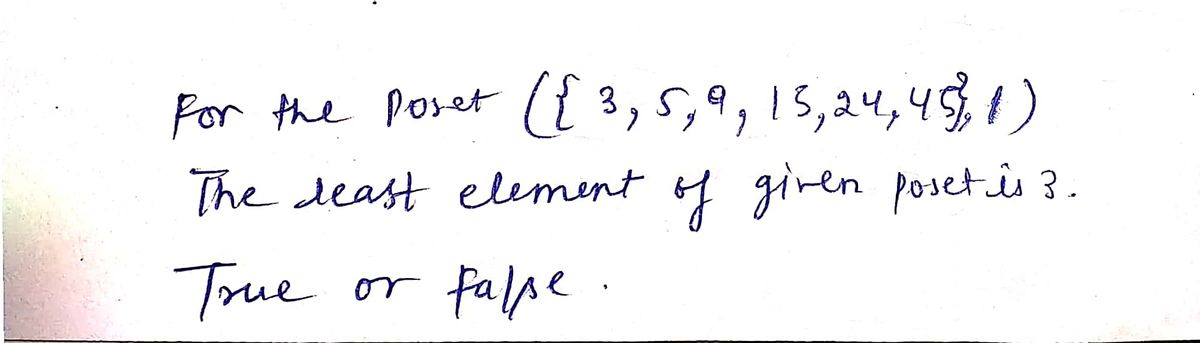 For the Poset ({ 3, 5, 9, 15, 24, 45}, /)
The least element of given poset is 3.
True or False.